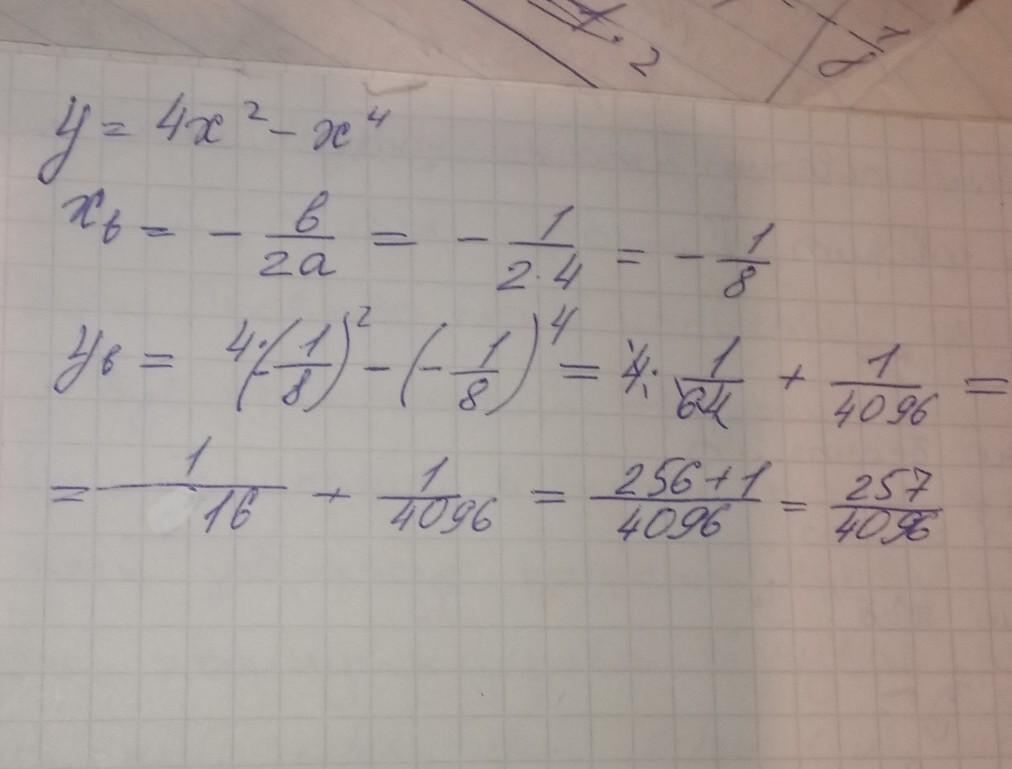 y = 4x² - x⁴
xв = - в/2a = - 1/2·4 = - 1/8
yв = 4·(-1/8)² - (-1/8)⁴ = 4· 1/64 + 1/4096 =
= 1/16 + 1/4096 = 256+1/4096 = 257/4096